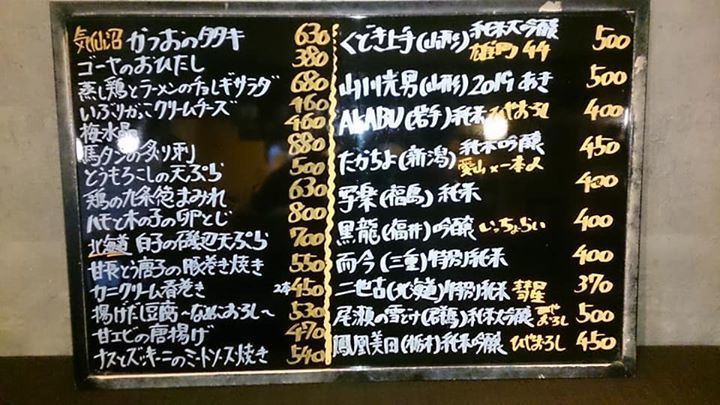 気仙沼 かつおのタタキ 630
ゴーヤのおひたし 380
蒸し鶏とラーメンのチョレギサラダ 680
いぶりがっこクリームチーズ 460
梅水晶 460
馬タンの炙り刺 880
とうもろこしの天ぷら 500
鶏の九条葱まみれ 630
ハモと木の子の卵とじ 800
北海道 白子の磯辺天ぷら 700
甘長とう唐子の豚巻き焼き 550
カニクリーム春巻き 2本450
揚げだし豆腐〜なめこおろし〜 530
甘エビの唐揚げ 470
ナスとズッキーニのミートソース焼き 540
くどき上手(山形)純米大吟醸 雄町44 500
山川光男(山形)2019あき 500
AKABU(岩手)純米 ひやおろし 400
たかちよ(新潟)純米吟醸 愛山×一本〆 450
写楽(福島)純米 400
黒龍(福井)吟醸 いっちょらい 400
而今(三重)特別純米 400
二世古(北海道)特別純米 彗星 370
尾瀬の雪どけ(群馬)純米大吟醸 ひやおろし 500
鳳凰美田(栃木)純米吟醸 ひやおろし 450